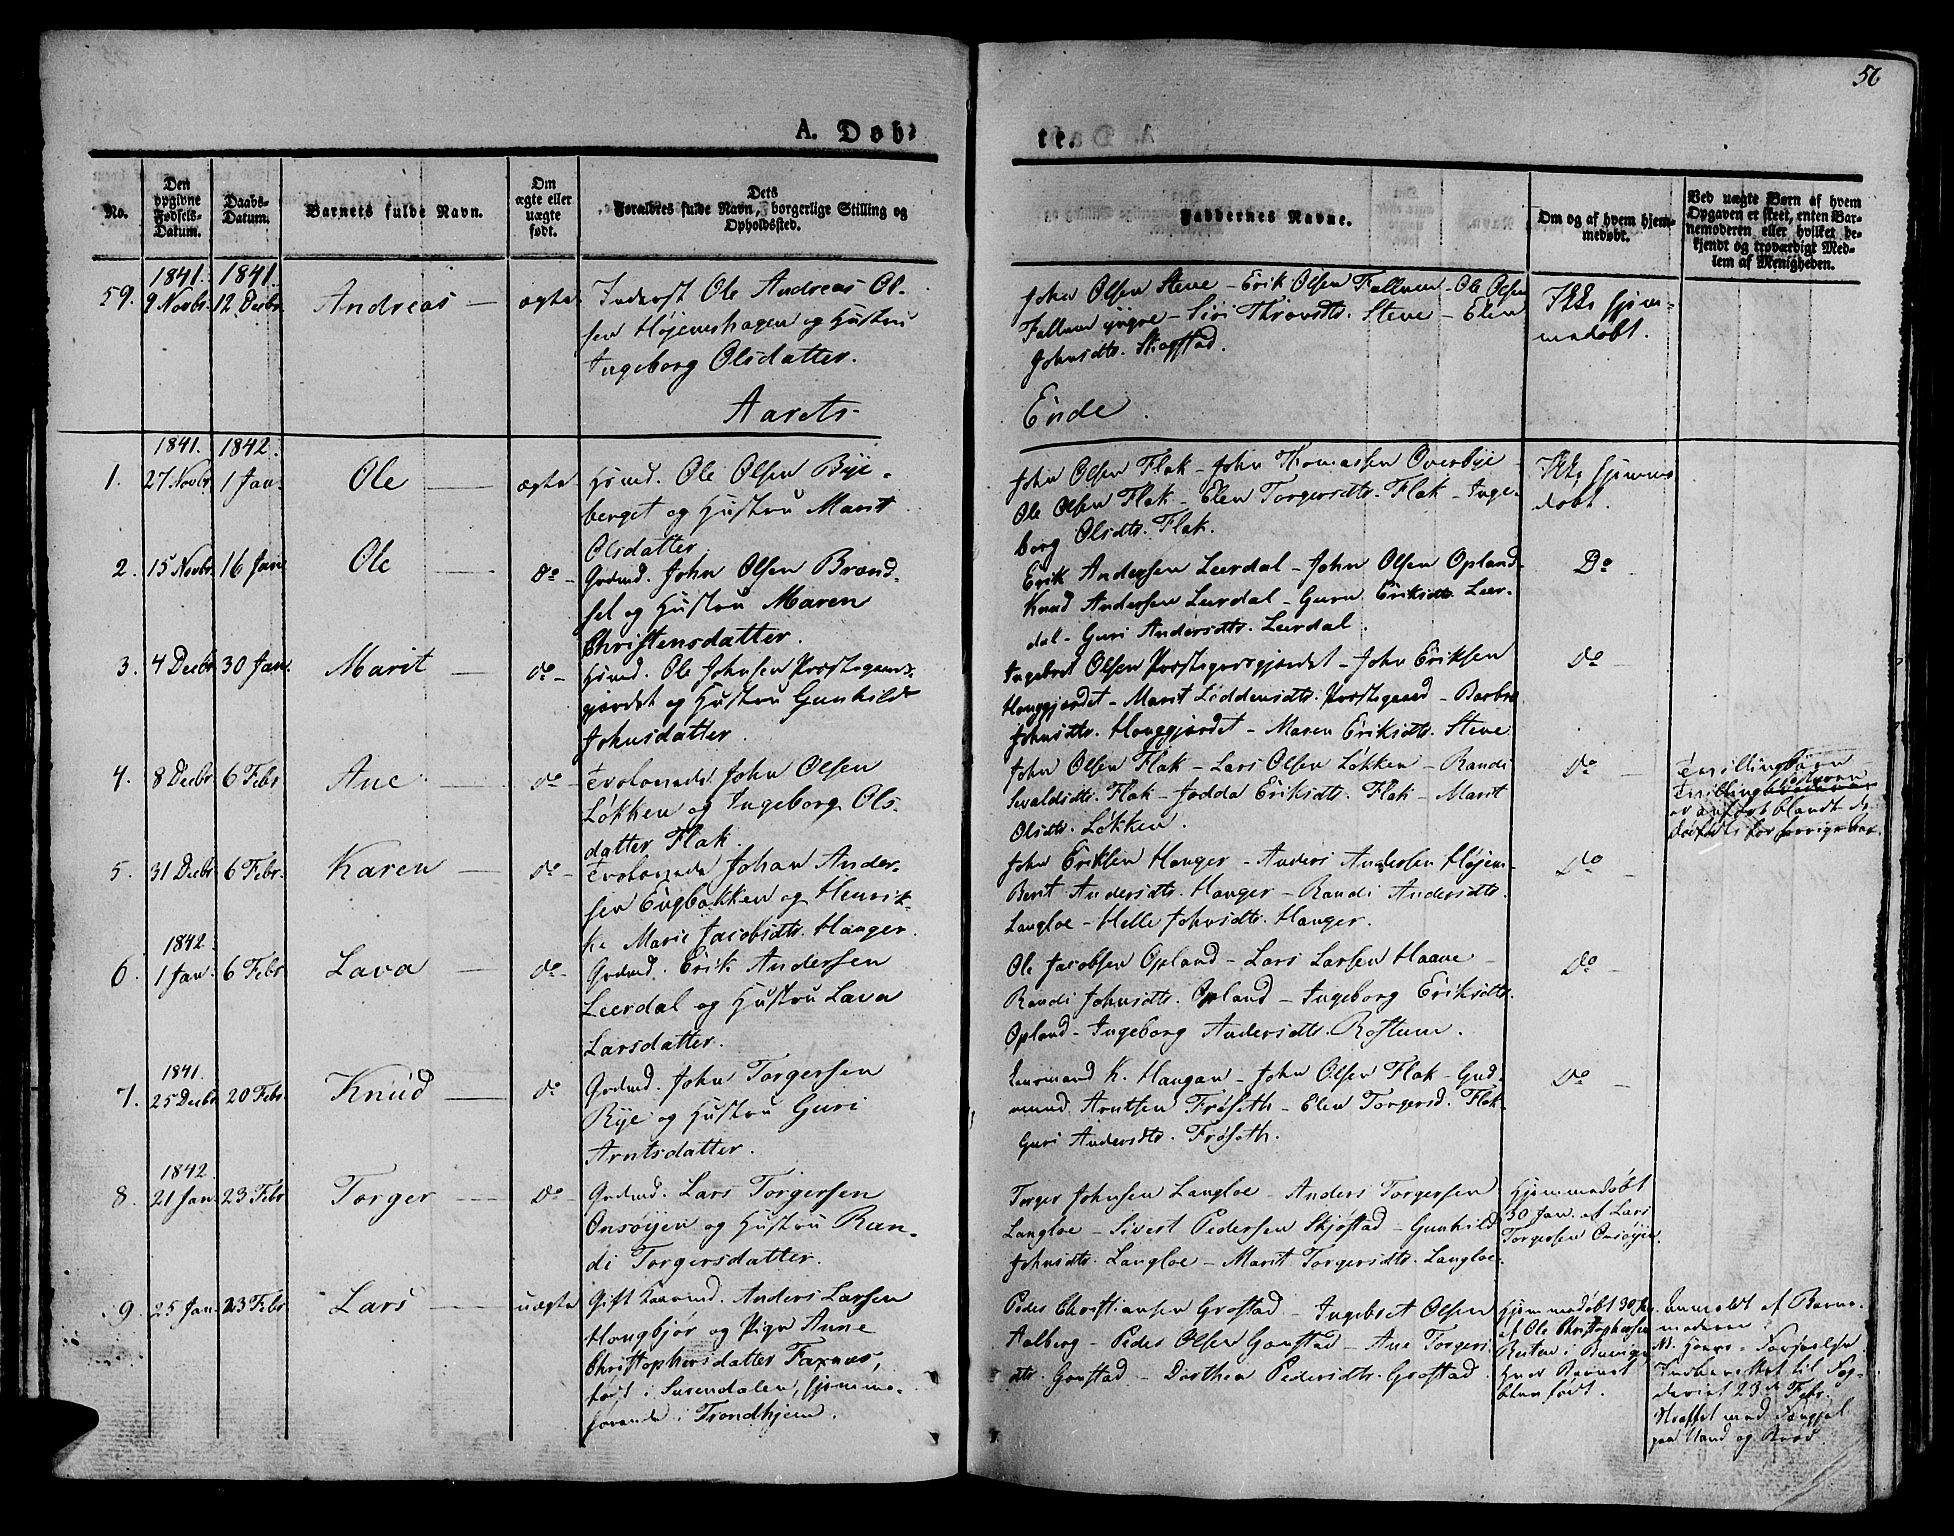 56
A. Døb-
te.
No.
Den
opgivne
Fødsels-
Datum.
Daabs-
Datum.
Barnets fulde Navn.
Om
ægte eller
uægte
født.
Dets
Forældres fulde Navn, borgerlige Stilling og
Opholdssted.
Faddernes Navne.
Om og af hvem hjem-
medøbt.
Ved uægte Børn af hvem
Opgaven er skeet, enten Bar-
nemoderen eller hvilket be-
kjendt og troværdigt Med-
lem af Menigheden.
1841. 1841.
59. 9 Novbr. 12 Decbr. Andreas ægte Inderst Ole Andreas Ol-
sen Højemshagen og Hustru
Ingeborg Olsdatter.
John Olsen Steve - Erik Olsen Fallum - Ole Olsen
Fallum yngre - Siri Thronsdtr. Steve - Elen
Johnsdtr. Skogstad.
Ikke hjem-
medøbt.
Aarets
Ende.
1841. 1842.
1. 27 Novbr. 1 Jan. Ole ægte Husmd. Ole Olsen Bye-
berget og Hustru Marit
Olsdatter
John Olsen Flak - John Thomassen Overbye -
Ole Olsen Flak - Elen Torgersdtr. Flak - Inge-
borg Olsdtr. Flak.
Ikke hjemme
døbt.
2. 15 Novbr. 16 Jan. Ole do - Grdmd. John Olsen Brend-
sel og Hustru Maren
Christensdatter.
Erik Andersen Leerdal - John Olsen Opland -
Knud Andersen Leerdal - Guru Eriksdtr. Leer-
dal - Guri Andersdtr. Leerdal.
Do
3. 4 Decbr. 30 Jan. Marit do - Husmd. Ole Johnsen Præstegaards-
gjerdet og Hustru Gunhild
Johnsdatter.
Ingebret Olsen Præstegrsgjerdet - John Eriksen
Hauggjerdet - Marit Loddensdtr. Præstegaard - Barbro
Johnsdtr. Hauggjerdet - Maren Eriksdtr. Steve
do
4. 8 Decbr. 6 Febr. Ane do John Olsen
Løkken og Ingeborg Ols-
datter Flak.
John Olsen Flak - Lars Olsen Løkken - Randi
Sevaldsdtr. Flak - Jodda Eriksdtr. Flak - Marit
Olsdtr. Løkken.
do
Tvillingbørn
er anført blandt de
dødfødte for forrige Aar.
5. 31 Decbr. 6 Febr. Karen do - Johan Ander-
sen Engbakken og Henrik-
ke Marie Jacobsdtr. Hanger.
John Eriksen Hanger - Anders Andersen Højem -
Berit Andersdtr. Hanger - Randi Andersdtr.
Langloe - Helle Johnsdtr. Hanger.
do
1842.
6. 1 Jan. 6 Febr. Lava do - Grdmd. Erik Andersen
Leerdal og Hustru Lava
Larsdatter.
Ole Jacobsen Opland - Lars Larsen Haave -
Randi Johnsdtr. Opland - Ingeborg Eriksdtr.
Opland - Ingeborg Andersdtr. Rostum.
do
1841.
7. 25 Decbr. 20 Febr. Knud do Grdmd. John Torgersen
Rye og Hustru Guri
Arntsdatter.
Lensmand K. Haugan - John Olsen Flak - Gud-
mund Arntsen Frøseth - Elen Torgersd. Flak -
Guri Andersdtr. Frøseth.
do
1842.
8. 21 Jan. 23 Febr. Torger do - Grdmd. Lars Torgersen
Onsøyen og Hustru Ran-
di Torgersdatter.
Torger Johnsen Langloe - Anders Torgersen
Langloe - Sivert Pedersen Skjøstad - Gunhild
Johnsdtr. Langloe - Marit Torgersdtr. Langloe.
Hjemmedøbt
30 Jan. af Lars
Torgersen Onsøyen.
9. 25 Jan. 23 Febr. Lars uægte Gift Anders Larsen
Haugbjør og Pige Anne
Christophersdatter Faxnæs,
født i Surendalen, hjemme-
hørende i Trondhjem.
Peder Christiansen Grostad - Ingebret Olsen
Aalberg - Peder Olsen Gaustad - Ane Torgers-
dtr. Gaustad - Dorthea Pedersdtr. Grostad.
Hjemmedøbt 30 Jan.
af Ole Christophersen
hvor Barnet
blev født.
Anmeldt af Barne-
moderen.
Indberettet til Fog-
deriet 23de Febr.
Straffet med Fængsel
paa Vand og Brød.